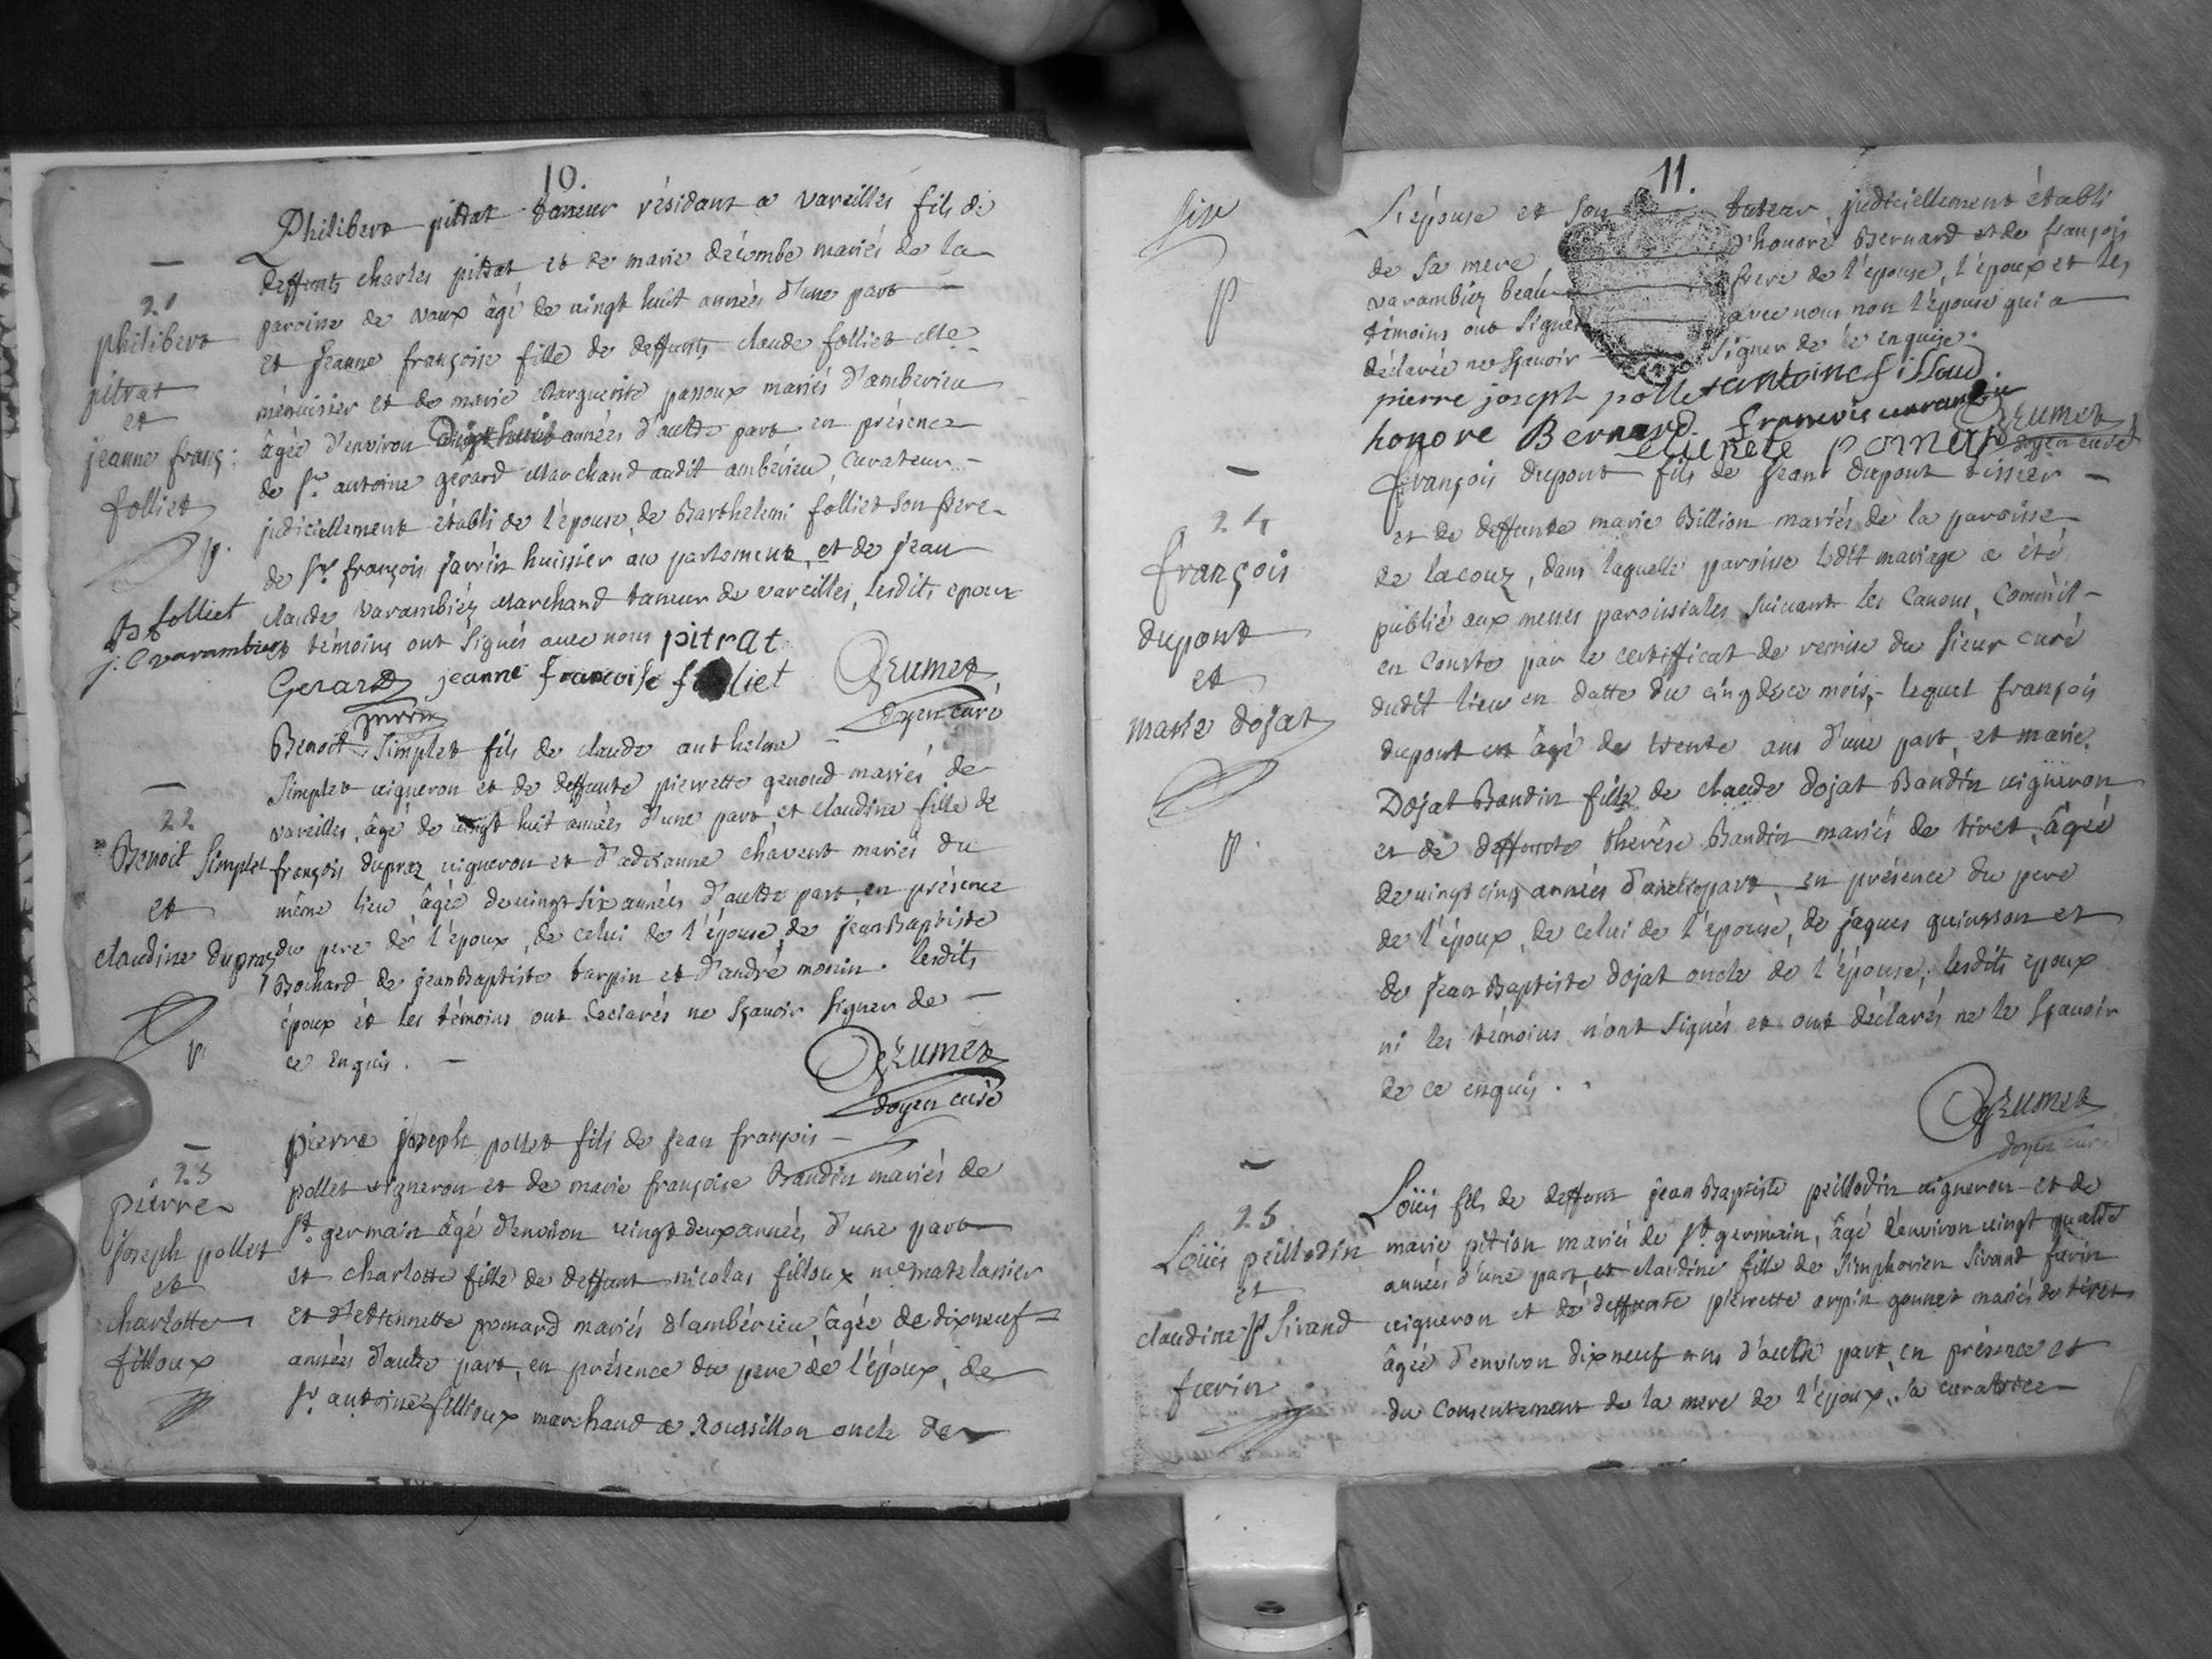 10.
Philibert pitrat taneur résidant a vareilles fils de
deffunts charles pitrat et de marie decombe mariés de la
paroisse de vaux âgé de vingt huit années d'une part
et jeanne françoise fille de deffunts claude folliet me
menuisier et de marie Marguerite passoux mariés d'amberieu
âgée d'environ vingt huit années d'autre part en présence
de sr. antoine gérard Marchand audit ambérieu, curateur
judiciellement établi de l'épouse, de Barthelemi folliet son frere
de sr françois jarrin huissier au parlement, et de jean
claude varambiéz Marchand taneur de vareilles, lesdits epoux
et témoins ont signés avec nous pitrat
Gerard jeanne francoise folliet GRumet
doyen curé
21
philibert
pitrat
et
jeanne franç:
folliet
p.
B folliet
j. C varambiez
Benoit Simplet fils de claude anthelme
Simplet vigneron et de deffunte pierrette genoud mariés de
vareilles, âgé de vingt huit années d'une part, et claudine fille de
françois dupraz vigneron et d'adrianne chavent mariés du
même lieu âgée de vingt six années d'autre part, en présence
du pere de l'époux, de celui de l'épouse, de jean Baptiste
Bochard de jean Baptiste tarpin et d'andré monin. lesdits
époux et les témoins ont declarés ne sçavoir signer de
ce enquis.
GRumet
doyen curé
22
Benoit Simplet
et
claudine dupraz
p
pierre joseph pollet fils de jean françois
pollet vigneron et de marie françoise Baudin mariés de
st. germain âgé d'environ vingt deux années d'une part
et charlotte fille de deffunt nicolas filloux me matelassier
et d'etiennette pomard mariés d'ambérieu, âgée de dix neuf
années d'autre part, en présence du pere de l'époux, de
sr. antoine fillioux marchand a Roussillon oncle de
23
pierre
joseph pollet
et
charlotte
filloux
11.
L'épouse et son tuteur, judiciellement établi
de sa mere d'honoré Bernard et de françois
varambiez beau frere de l'épouse, l'époux et les
témoins ont signés avec nous non l'épouse qui a
déclarée ne sçavoir signer de ce enquise.
pierre joseph pollet antoine filloud
honore Bernard. francois varambie
GRumet
doyen curé
p
françois dupont fils de jean dupont tissier
et de deffunte marie Billion mariés de la paroisse
de lacoux, dans laquelle paroisse ledit mariage a été
publié aux messes paroissiales suivant les Canons, comme il
en conste par le certifficat de remise du sieur curé
dudit lieu en datte du cinq de ce mois, lequel françois
dupont est âgé de trente ans d'une part, et marie
Dojat Baudin fille de claude Dojat Baudin vigneron
et de deffuncte thérése Baudin mariés de tiret, âgée
de vingt cinq années d'autre part en présence du pere
de l'époux, de celui de l'épouse, de jaques guinsson et
de jean Baptiste dojat oncle de l'épouse, lesdits epoux
ni les témoins n'ont signés et ont déclarés ne le sçavoir
de ce enquis.
GRumet
doyen curé
24
françois
dupont
et
marie dojat
p.
Loüis fils de deffunt jean Baptiste peillodin vigneron et de
marie pition mariés de st germain, âgé d'environ vingt quatre
années d'une part, et claudine fille de simphorien sivand favrin
vigneron et de deffunte pierrette arpin gonnet mariés de tiret
âgée d'environ dix neuf ans d'autre part, en présence et
du consentement de la mere de l'époux, sa curatrice
25
Loüis peillodin
et
claudine Sivand
favrin